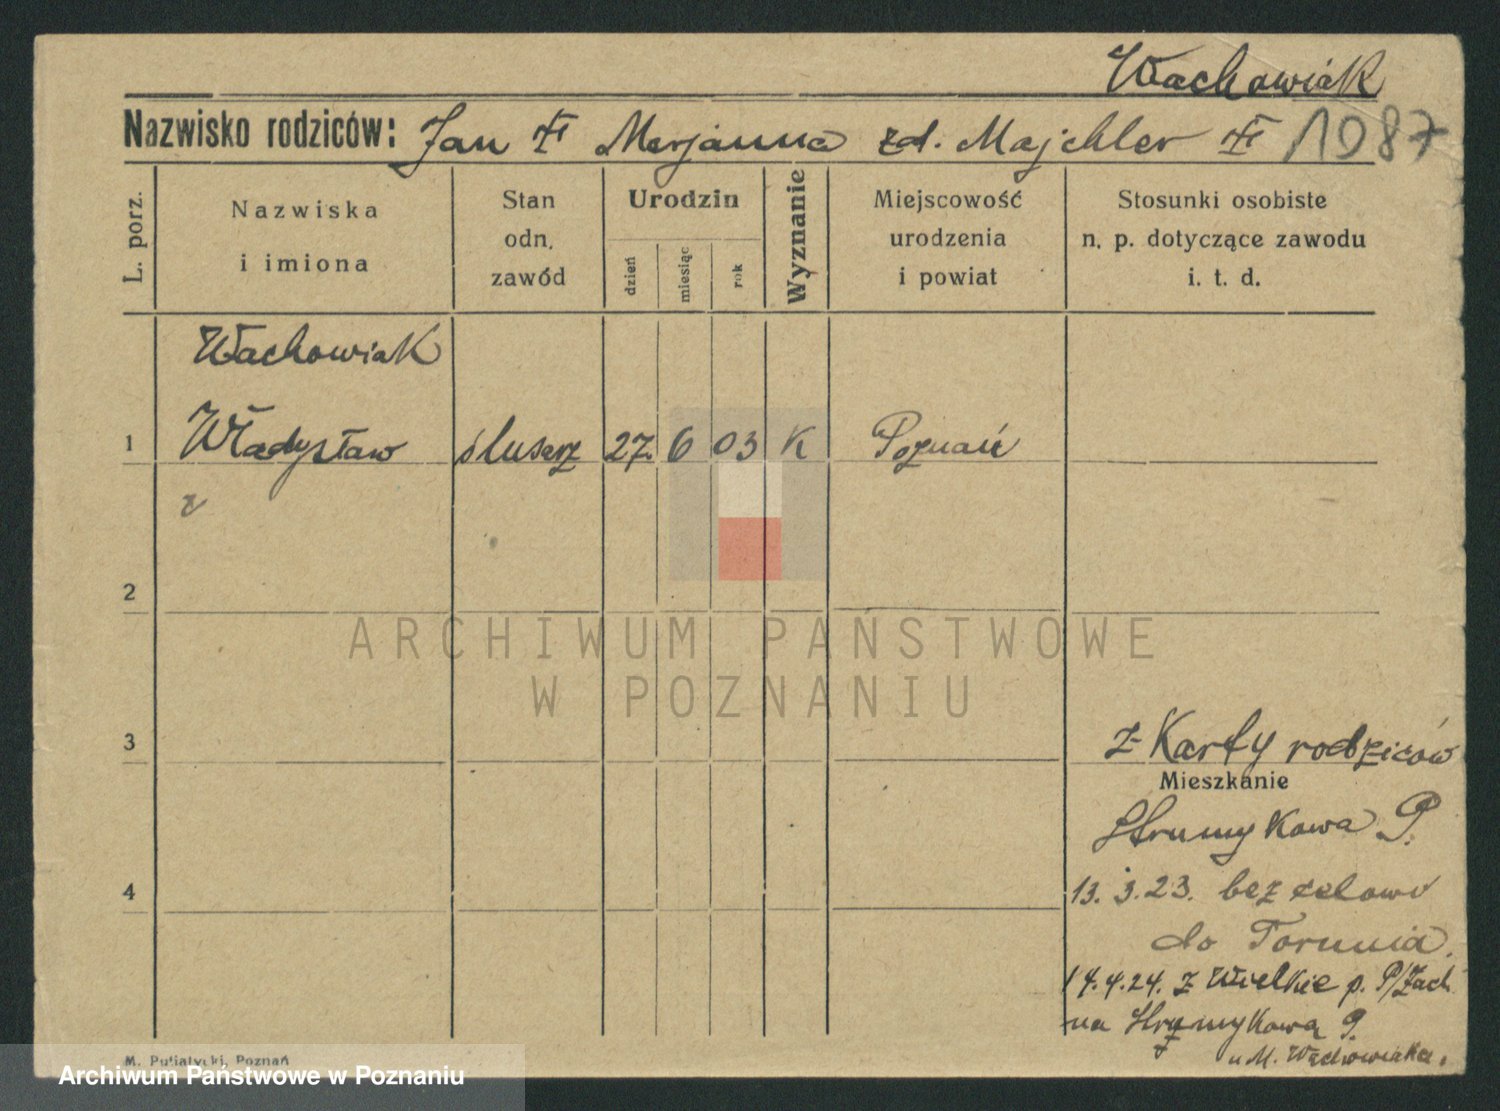 Wachowiak
Nazwisko rodziców: Jan Marjanna zd. Majchler 1987
L. porz.
Nazwiska
i imiona
Stan
odn.
zawód
Urodzin
dzień
miesiąc
rok
Wyznanie
Miejscowość
urodzenia
i powiat
Stosunki osobiste
n. p. dotyczące zawodu
i. t. d.
Wachowiak
1 Władysław ślusarz 27. 6 03 K Poznań
2
ARCHIWUM PAŃSTWOWE
W POZNANIU
3
z Karty rodziców
Mieszkanie
Strumykowa P.
4
13. 3. 23. bez celowo
do Torunia.
14. 4. 24. z Wielkie p. P/Zach
na Strumykowa P.
u M. Wachowiaka.
M. Putiatycki, Poznań
Archiwum Państwowe w Poznaniu